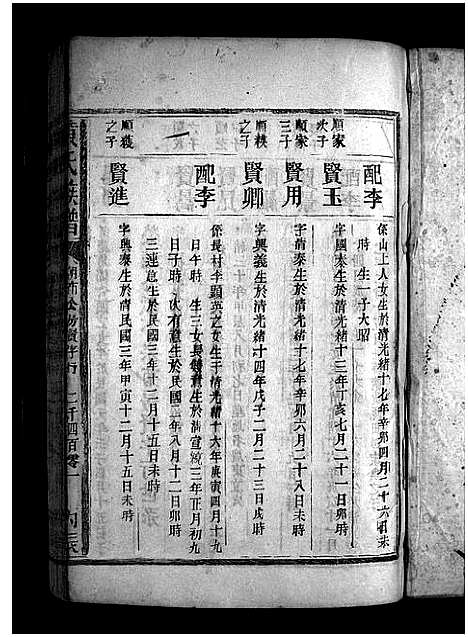 配李
係山上人女生於清光緒十七年辛卯四月二十六日未
時 生一子大昭
順家
次子
賢玉
字國泰生於清光緒十三年丁亥七月二十一日卯時
順家
三子
賢用
字清泰生於清光緒十七年辛卯六月二十八日未時
順秩
之子
賢卿
字興義生於清光緒十四年戊子二月二十三日戌時
配李
係長村李顕英之女生于清光緒十六年庚寅四月十九
日午時 生三女長鍾意生於清宣統二年正月初九
日子時 次有意生於民國二年八月十二日卯時
三連意生於民國三年十二月十五日未時
順秩
之子
賢進
字興泰生於清民國三年甲寅十二月十五日未時
氏族譜
二千四百零一